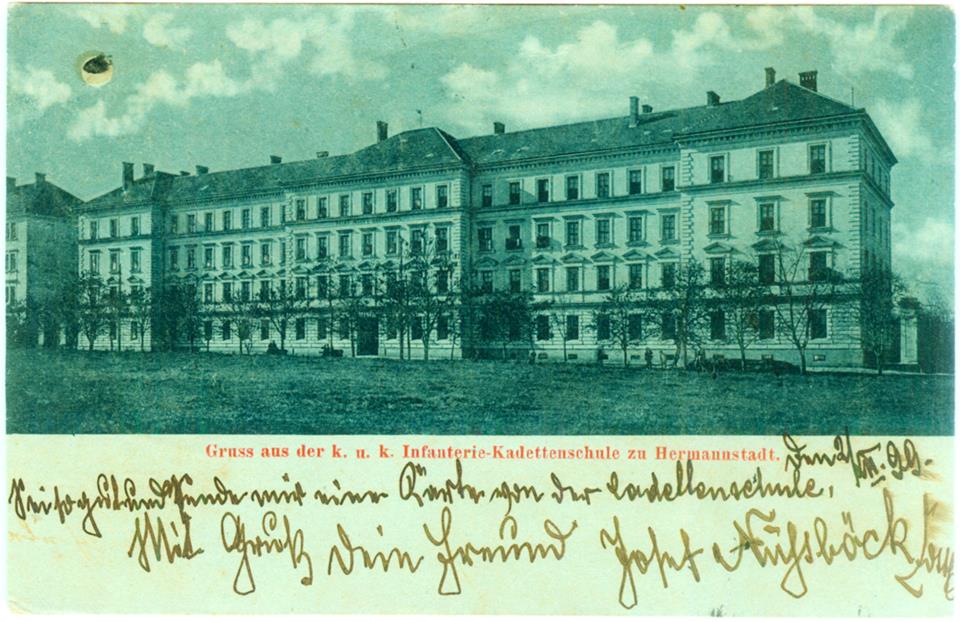 Gruss aus der k. u. k. Infanterie-Kadettenschule zu Hermannstadt.
Den 2/VII. 99.
Sei so gut und sende mir eine Karte von der Cadettenschule.
Mit Gruß Dein Freund Josef